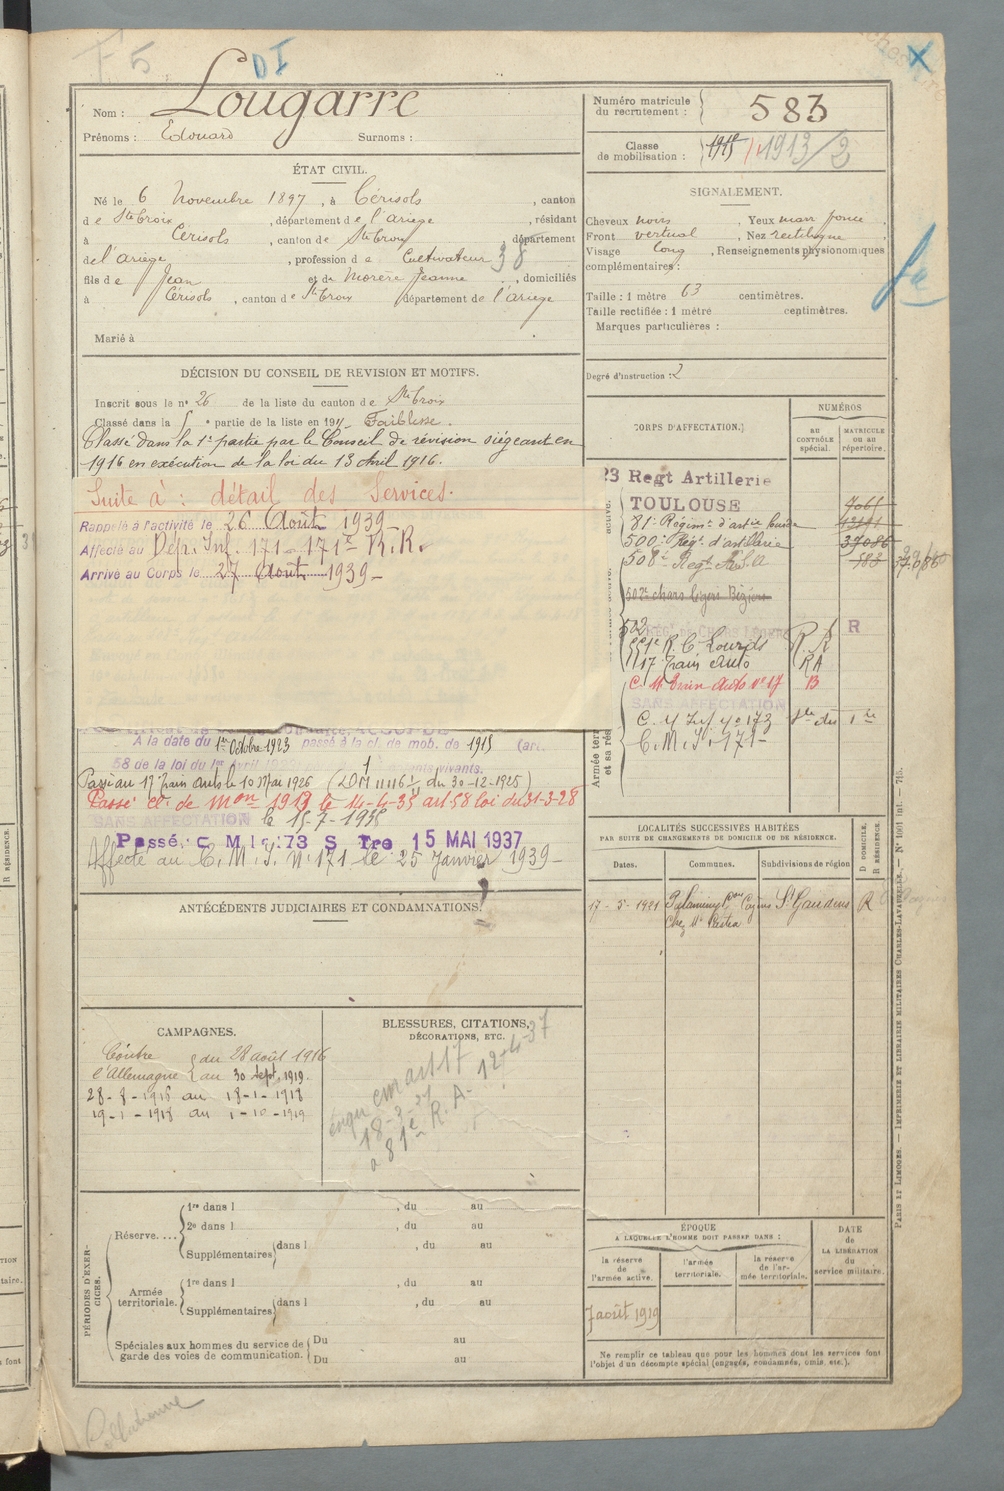 F 5
DI
Nom : Lougarre
Prénoms : Edouard Surnoms :
Numéro matricule du recrutement : 583
Classe de mobilisation : 1915 1913/2
ÉTAT CIVIL.
Né le 6 Novembre 1897, à Cérisols, canton
de Ste Croix, département de l'ariège, résidant
à Cérisols, canton de Ste Croix département
de l'ariège, profession de Cultivateur 38
fils de Jean et de Morère Jeanne, domiciliés
à Cérisols, canton de Ste Croix département de l'ariège
Marié à
SIGNALEMENT.
Cheveux noirs, Yeux marr foncé,
Front vertical, Nez rectiligne
Visage long, Renseignements physionomiques
complémentaires :
Taille : 1 mètre 63 centimètres.
Taille rectifiée : 1 mètre centimètres.
Marques particulières :
Degré d'instruction : 2
DÉCISION DU CONSEIL DE REVISION ET MOTIFS.
Inscrit sous le n° 26 de la liste du canton de Ste Croix
Classé dans la 5e partie de la liste en 191 Faiblesse.
Classé dans la 1e partie par le Conseil de révision siégeant en
1916 en exécution de la loi du 13 Avril 1916.
Suite à : détail des Services.
Rappelé à l'activité le 26 Août 1939
Affecté au Dép. Inf. 171 - 171e R.R.
Arrivé au Corps le 27 Août 1939
A la date du 1er Octobre 1923 passé à la cl. de mob. de 1915 (art.
58 de la loi du 1er Avril 1923 enfants vivants.
Passé au 17e Train Auto le 10 Mai 1926 (DM 11116 1/1 du 30-12-1925)
Passé cl. de Mon 1913 le 14-4-35 art 58 loi du 31-3-28
SANS AFFECTATION le 15-7-1935
Passé C M I 173 S Tre 15 MAI 1937
Affecté au C.M.I. N° 171 le 25 Janvier 1939
CORPS D'AFFECTATION.
NUMÉROS
au CONTRÔLE spécial.
MATRICULE OU AU répertoire.
23 Regt Artillerie
TOULOUSE
81e Régimt d'artie lourde
500e Régt d'artillerie 37086
508e Regt A.S.A 583
502e chars légers Béziers
502 R
551e R. C. Lourds R R
17 Train Auto RA
C. M Train Auto n° 17 B
SANS AFFECTATION
C. M Inf n° 173
C.M.I. 171
ANTÉCÉDENTS JUDICIAIRES ET CONDAMNATIONS.
LOCALITÉS SUCCESSIVES HABITÉES
PAR SUITE DE CHANGEMENTS DE DOMICILE OU DE RÉSIDENCE.
Dates. Communes. Subdivisions de région D DOMICILE. R RÉSIDENCE.
17-5-1921 Palaminy par Cazères St Gaudens R
CAMPAGNES.
Contre l'Allemagne du 28 août 1916
au 30 sept. 1919.
28-8-1916 au 18-1-1918
19-1-1918 au 1-10-1919
BLESSURES, CITATIONS,
DÉCORATIONS, ETC.
18-3-37 12-4-37
a 81e R. A.
PÉRIODES D'EXERCICES.
Réserve.... 1re dans l , du au
2e dans l , du au
Supplémentaires dans l , du au
Armée territoriale. 1re dans l , du au
Supplémentaires dans l , du au
Spéciales aux hommes du service de Du au
garde des voies de communication. Du au
ÉPOQUE
A LAQUELLE L'HOMME DOIT PASSER DANS :
la réserve de l'armée active.
l'armée territoriale.
la réserve de l'armée territoriale.
DATE de LA LIBÉRATION du service militaire.
7 août 1919
Ne remplir ce tableau que pour les hommes dont les services font
l'objet d'un décompte spécial (engagés, condamnés, omis, etc.).
PARIS ET LIMOGES. — IMPRIMERIE ET LIBRAIRIE MILITAIRES CHARLES-LAVAUZELLE. — N° 1001 int. — 7/15.